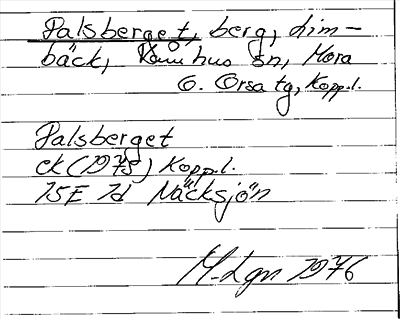 Palsberget, berg, Lim-
bäck, Våmhus sn, Mora
o. Orsa tg, Koppl.
Palsberget
ek (1975) Koppl.
15E 7d Näcksjön
M. Lgn 1976